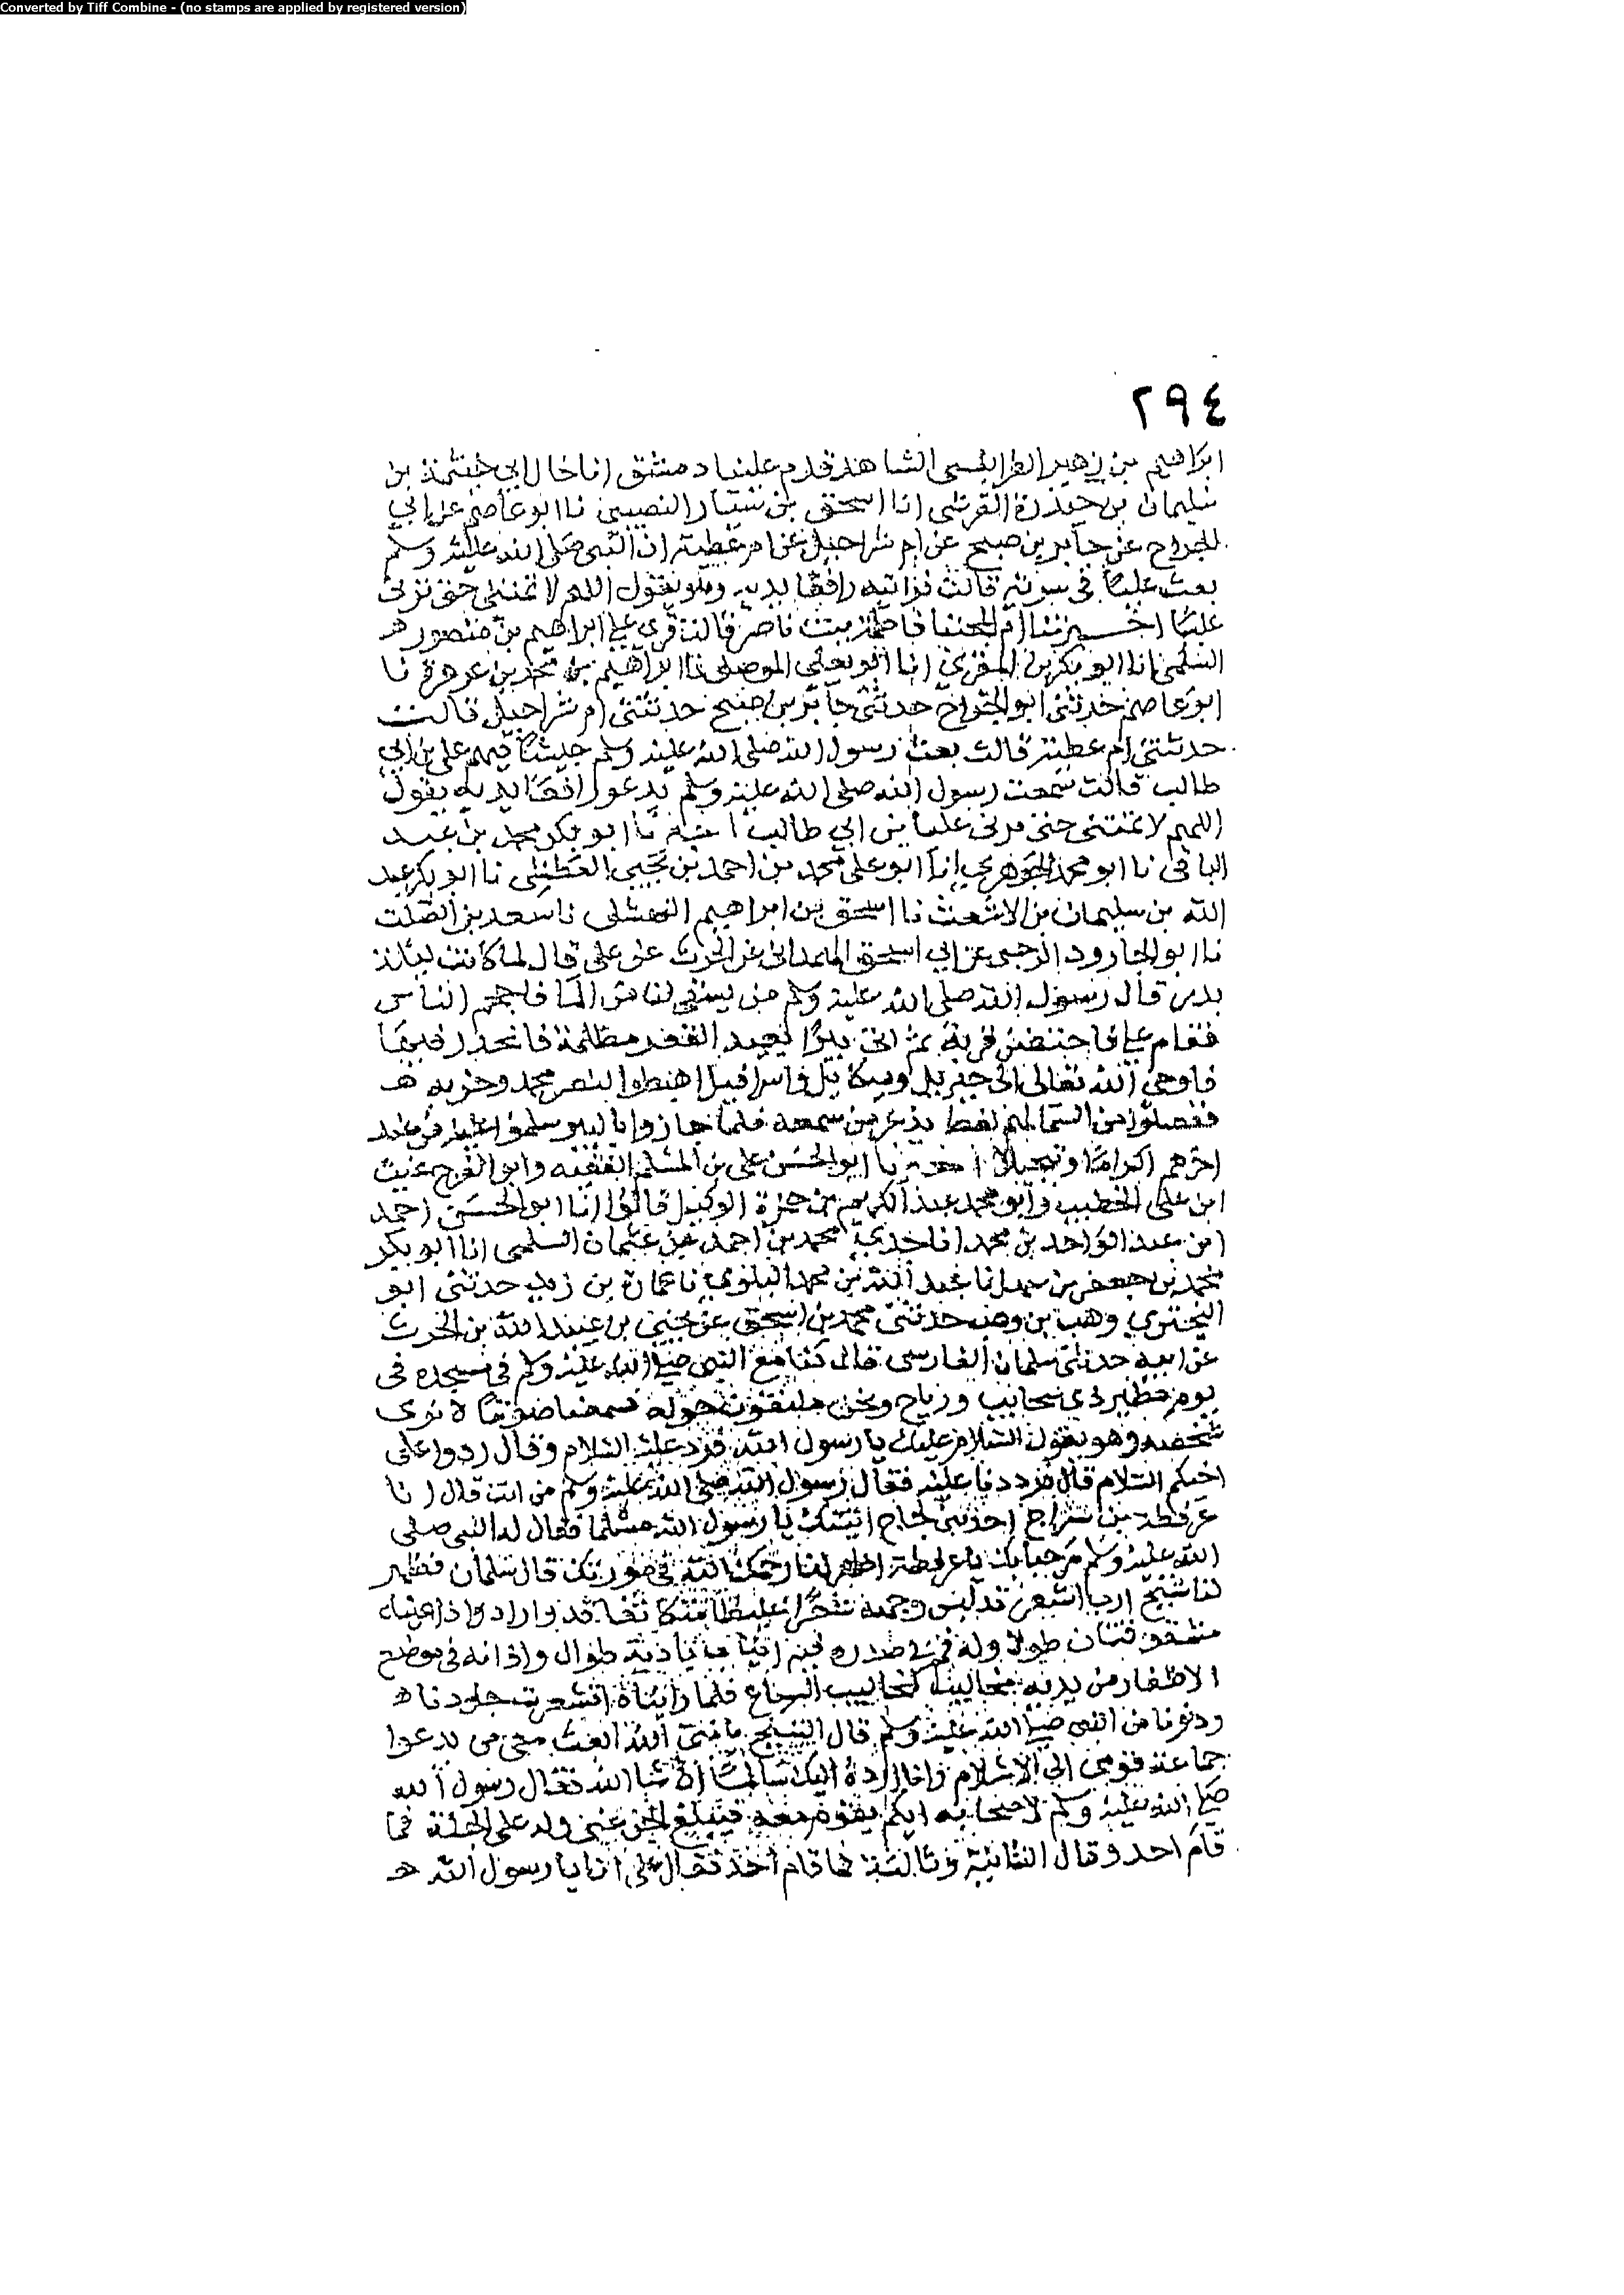 Converted by Tiff Combine - (no stamps are applied by registered version)
٢٩٤
ابراهيم بن زهير الطرابلسى الشاهد قدم علينا دمشق انا خال ابي خيثمة بن
سليمان بن حيدرة القرشى انا اسحق بن سيار النصيبى نا ابو عاصم عن ابي
الجراح عن جابر بن صبح عن ام شراحيل عن ام عطية ان النبى صلى الله عليه وسلم
بعث عليا فى سرية قالت فراتيه رافعا يديه وهو يقول اللهم لا تمتنى حتى ترينى
عليا اخبرتنا ام المجتبا فاطمة بنت ناصر قالت قرى على ابراهيم بن منصور
السلمى انا ابو بكر بن المقرى انا ابو يعلى الموصلى نا ابراهيم بن محمد بن عرعرة نا
ابو عاصم حدثنى ابو الجراح حدثنى جابر بن صبح حدثتنى ام شراحيل قالت
حدثتنى ام عطية قالت بعث رسول الله صلى الله عليه وسلم جيشا فيهم على بن ابي
طالب قالت سمعت رسول الله صلى الله عليه وسلم يدعو رافعا يديه يقول
اللهم لا تمتنى حتى ترنى عليا بن ابي طالب نا ابو بكر محمد بن عبد
الباقى نا ابو محمد الجوهرى انا ابو على محمد بن احمد بن يحيى العطشى نا ابو بكر عبد
الله بن سليمان بن الاشعث نا اسحق بن ابراهيم النهشلى نا سعد بن الصلت
نا ابو الجارود الرحبى عن ابي اسحق الهمدانى عن الحرث عن على قال لما كانت ليلة
بدر قال رسول الله صلى الله عليه وسلم من يستقى لنا من الما فاحجم الناس
فقام على فاحتضن قربة ثم اتى بيرا بعيد القعر مظلمة فانحدر فيها
فاوحى الله تعالى الى جبريل وميكاييل واسرافيل اهبطوا لنصر محمد وحزبه
ففصلوا من السما لهم لغط يذعر من سمعه فلما جازوا بالبير سلموا عليه من عند
اخرهم اكراما وتبجيلا نا ابو الحسن على بن المسلم الفقيه وابو الفرج غيث
ابن على الخطيب وابو محمد عبد الكريم بن حمزة الوكيل قالوا انا ابو الحسن احمد
ابن عبد الواحد بن محمد انا جدى محمد بن احمد بن عثمان السلمى انا ابو بكر
محمد بن جعفر بن سهل نا عبد الله بن محمد البلوى نا عمارة بن زيد حدثنى ابو
البخترى وهب بن وهب حدثنى محمد بن اسحق عن يحيى بن عبد الله بن الحرث
عن ابيه حدثنى سلمان الفارسى قال كنا مع النبى صلى الله عليه وسلم فى مسجده فى
يوم مطير ذى سحايب ورياح ونحن ملتفون حوله فسمعنا صوتا لا نرى
شخصه وهو يقول السلام عليك يا رسول الله فرد عليه السلام وقال ردوا على
اخيكم السلام قال فرددنا عليه فقال رسول الله صلى الله عليه وسلم من انت قال انا
عرفطة بن شمراخ احد بنى نجاح اتيتك يا رسول الله مسلما فقال له النبى صلى
الله عليه وسلم مرحبا بك يا عرفطة اظهر لنا رحمك الله فى صورتك قال سلمان فظهر
لنا شيخ ارب اشعر قد لبس وجهه شعرا غليظا متكاثفا قد واراه واذا عيناه
مشقوقتان طولا وله فم فى صدره فيه انياب بادية طوال واذا له فى موضع
الاظفار من يديه مخاليب كمخاليب السباع فلما رايناه اقشعرت جلودنا
ودنونا من النبى صلى الله عليه وسلم قال الشيخ يا نبى الله ابعث معى من يدعوا
جماعة قومى الى الاسلام وانا ارده اليك سالما ان شا الله فقال رسول الله
صلى الله عليه وسلم لاصحابه ايكم يقوم معه فيبلغ الجن عنى وله على الجنة فما
قام احد وقال الثانية وثالثة فما قام احد فقال على انا يا رسول الله